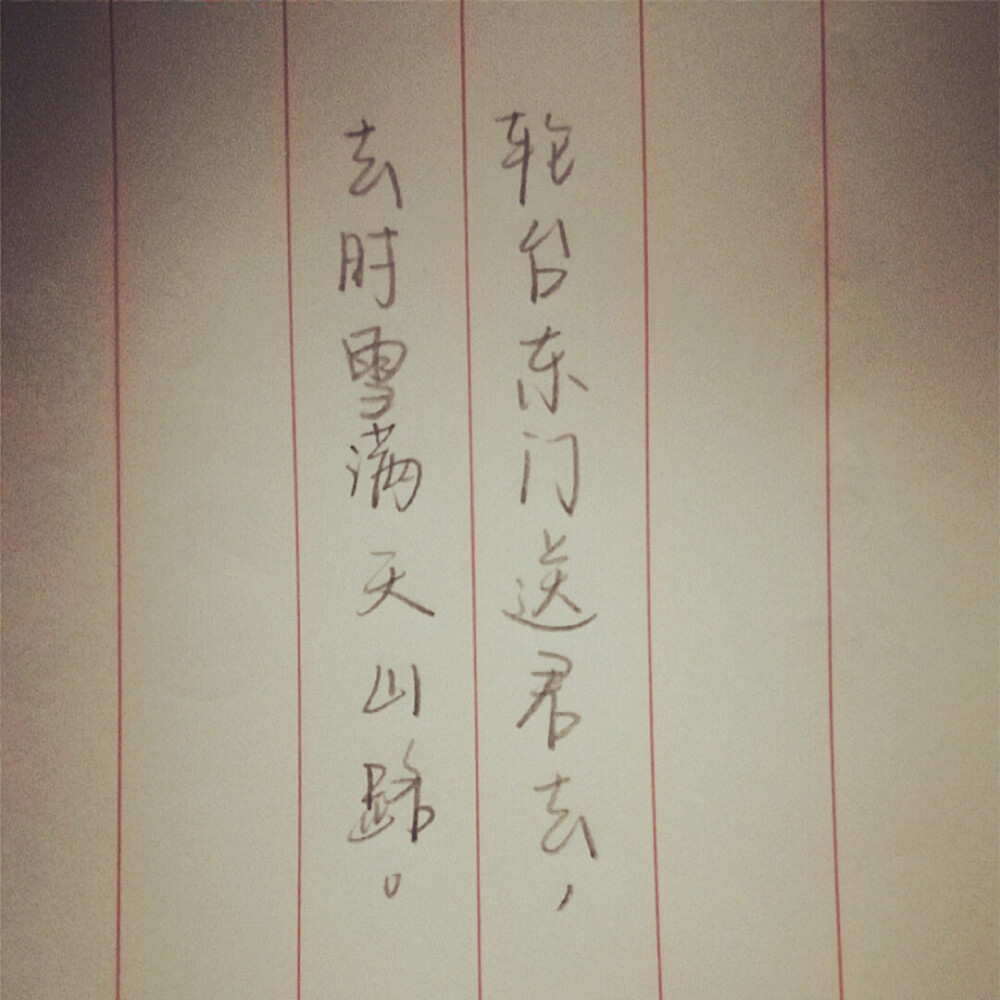 轮台东门送君去，
去时雪满天山路。